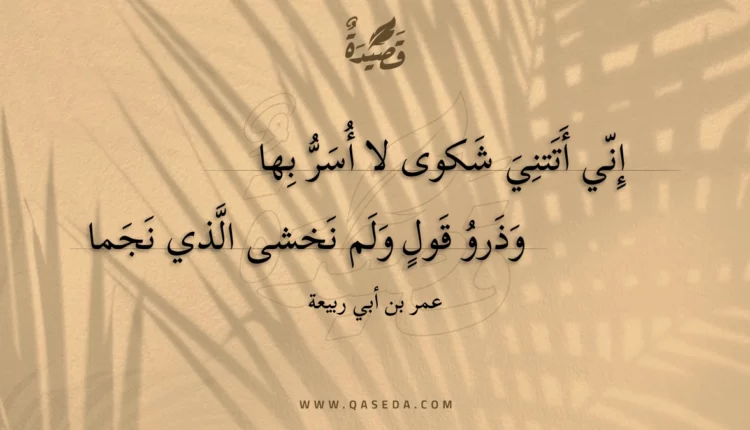 قَصِيْدَةٌ
إِنّي أَتَتنِيَ شَكوى لا أُسَرُّ بِها
وَذَروُ قَولٍ وَلَم نَخشى الَّذي نَجَما
عمر بن أبي ربيعة
WWW.QASEDA.COM